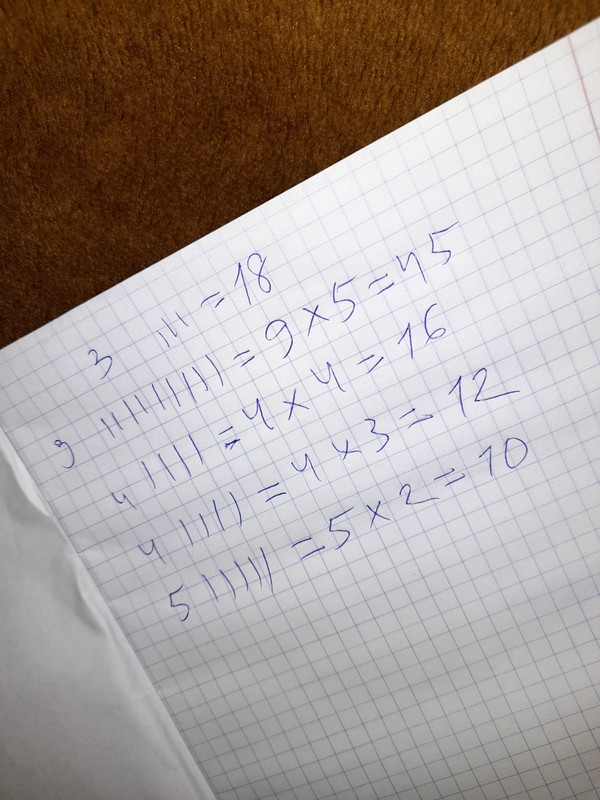 3 ||| = 18
9 ||||||||| = 9 × 5 = 45
4 |||| = 4 × 4 = 16
4 |||| = 4 × 3 = 12
5 ||||| = 5 × 2 = 10